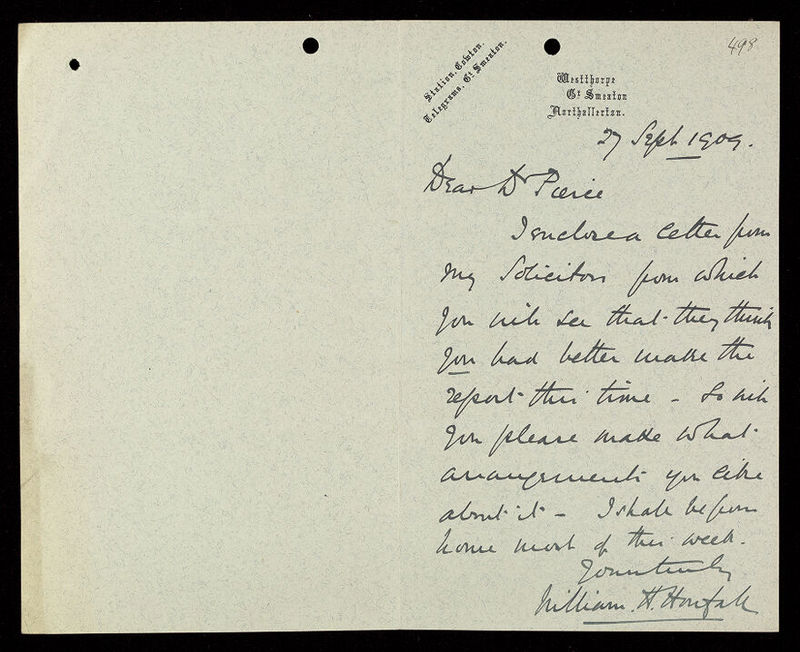 498
Station, Cowton.
Telegrams, Gt Smeaton.
Westthorpe
Gt Smeaton
Northallerton.
27 Sept 1909.
Dear Dr Pierce
I enclose a letter from
my Solicitors from which
you will see that they think
you had better make the
report this time - So will
you please make what
arrangements you like
about it - I shall be from
home most of this week.
Yours truly
William. H. Horsfall